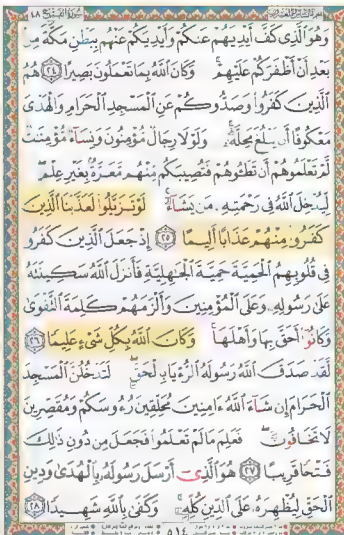 الجزء السادس والعشرون سورة الفتح ٤٨
وَهُوَ الَّذِي كَفَّ أَيْدِيَهُمْ عَنكُمْ وَأَيْدِيَكُمْ عَنْهُم بِبَطْنِ مَكَّةَ مِنۢ
بَعْدِ أَنْ أَظْفَرَكُمْ عَلَيْهِمْ ۚ وَكَانَ اللَّهُ بِمَا تَعْمَلُونَ بَصِيرًا ﴿٢٤﴾ هُمُ
الَّذِينَ كَفَرُوا وَصَدُّوكُمْ عَنِ الْمَسْجِدِ الْحَرَامِ وَالْهَدْيَ
مَعْكُوفًا أَن يَبْلُغَ مَحِلَّهُ ۚ وَلَوْلَا رِجَالٌ مُّؤْمِنُونَ وَنِسَاءٌ مُّؤْمِنَاتٌ
لَّمْ تَعْلَمُوهُمْ أَن تَطَـُٔوهُمْ فَتُصِيبَكُم مِّنْهُم مَّعَرَّةٌ بِغَيْرِ عِلْمٍ ۖ
لِّيُدْخِلَ اللَّهُ فِي رَحْمَتِهِ مَن يَشَاءُ ۚ لَوْ تَزَيَّلُوا لَعَذَّبْنَا الَّذِينَ
كَفَرُوا مِنْهُمْ عَذَابًا أَلِيمًا ﴿٢٥﴾ إِذْ جَعَلَ الَّذِينَ كَفَرُوا
فِي قُلُوبِهِمُ الْحَمِيَّةَ حَمِيَّةَ الْجَـٰهِلِيَّةِ فَأَنزَلَ اللَّهُ سَكِينَتَهُ
عَلَىٰ رَسُولِهِ وَعَلَى الْمُؤْمِنِينَ وَأَلْزَمَهُمْ كَلِمَةَ التَّقْوَىٰ
وَكَانُوا أَحَقَّ بِهَا وَأَهْلَهَا ۚ وَكَانَ اللَّهُ بِكُلِّ شَيْءٍ عَلِيمًا ﴿٢٦﴾
لَّقَدْ صَدَقَ اللَّهُ رَسُولَهُ الرُّءْيَا بِالْحَقِّ ۖ لَتَدْخُلُنَّ الْمَسْجِدَ
الْحَرَامَ إِن شَاءَ اللَّهُ ءَامِنِينَ مُحَلِّقِينَ رُءُوسَكُمْ وَمُقَصِّرِينَ
لَا تَخَافُونَ ۖ فَعَلِمَ مَا لَمْ تَعْلَمُوا فَجَعَلَ مِن دُونِ ذَٰلِكَ
فَتْحًا قَرِيبًا ﴿٢٧﴾ هُوَ الَّذِي أَرْسَلَ رَسُولَهُ بِالْهُدَىٰ وَدِينِ
الْحَقِّ لِيُظْهِرَهُ عَلَى الدِّينِ كُلِّهِ ۚ وَكَفَىٰ بِاللَّهِ شَهِيدًا ﴿٢٨﴾
٥١٤